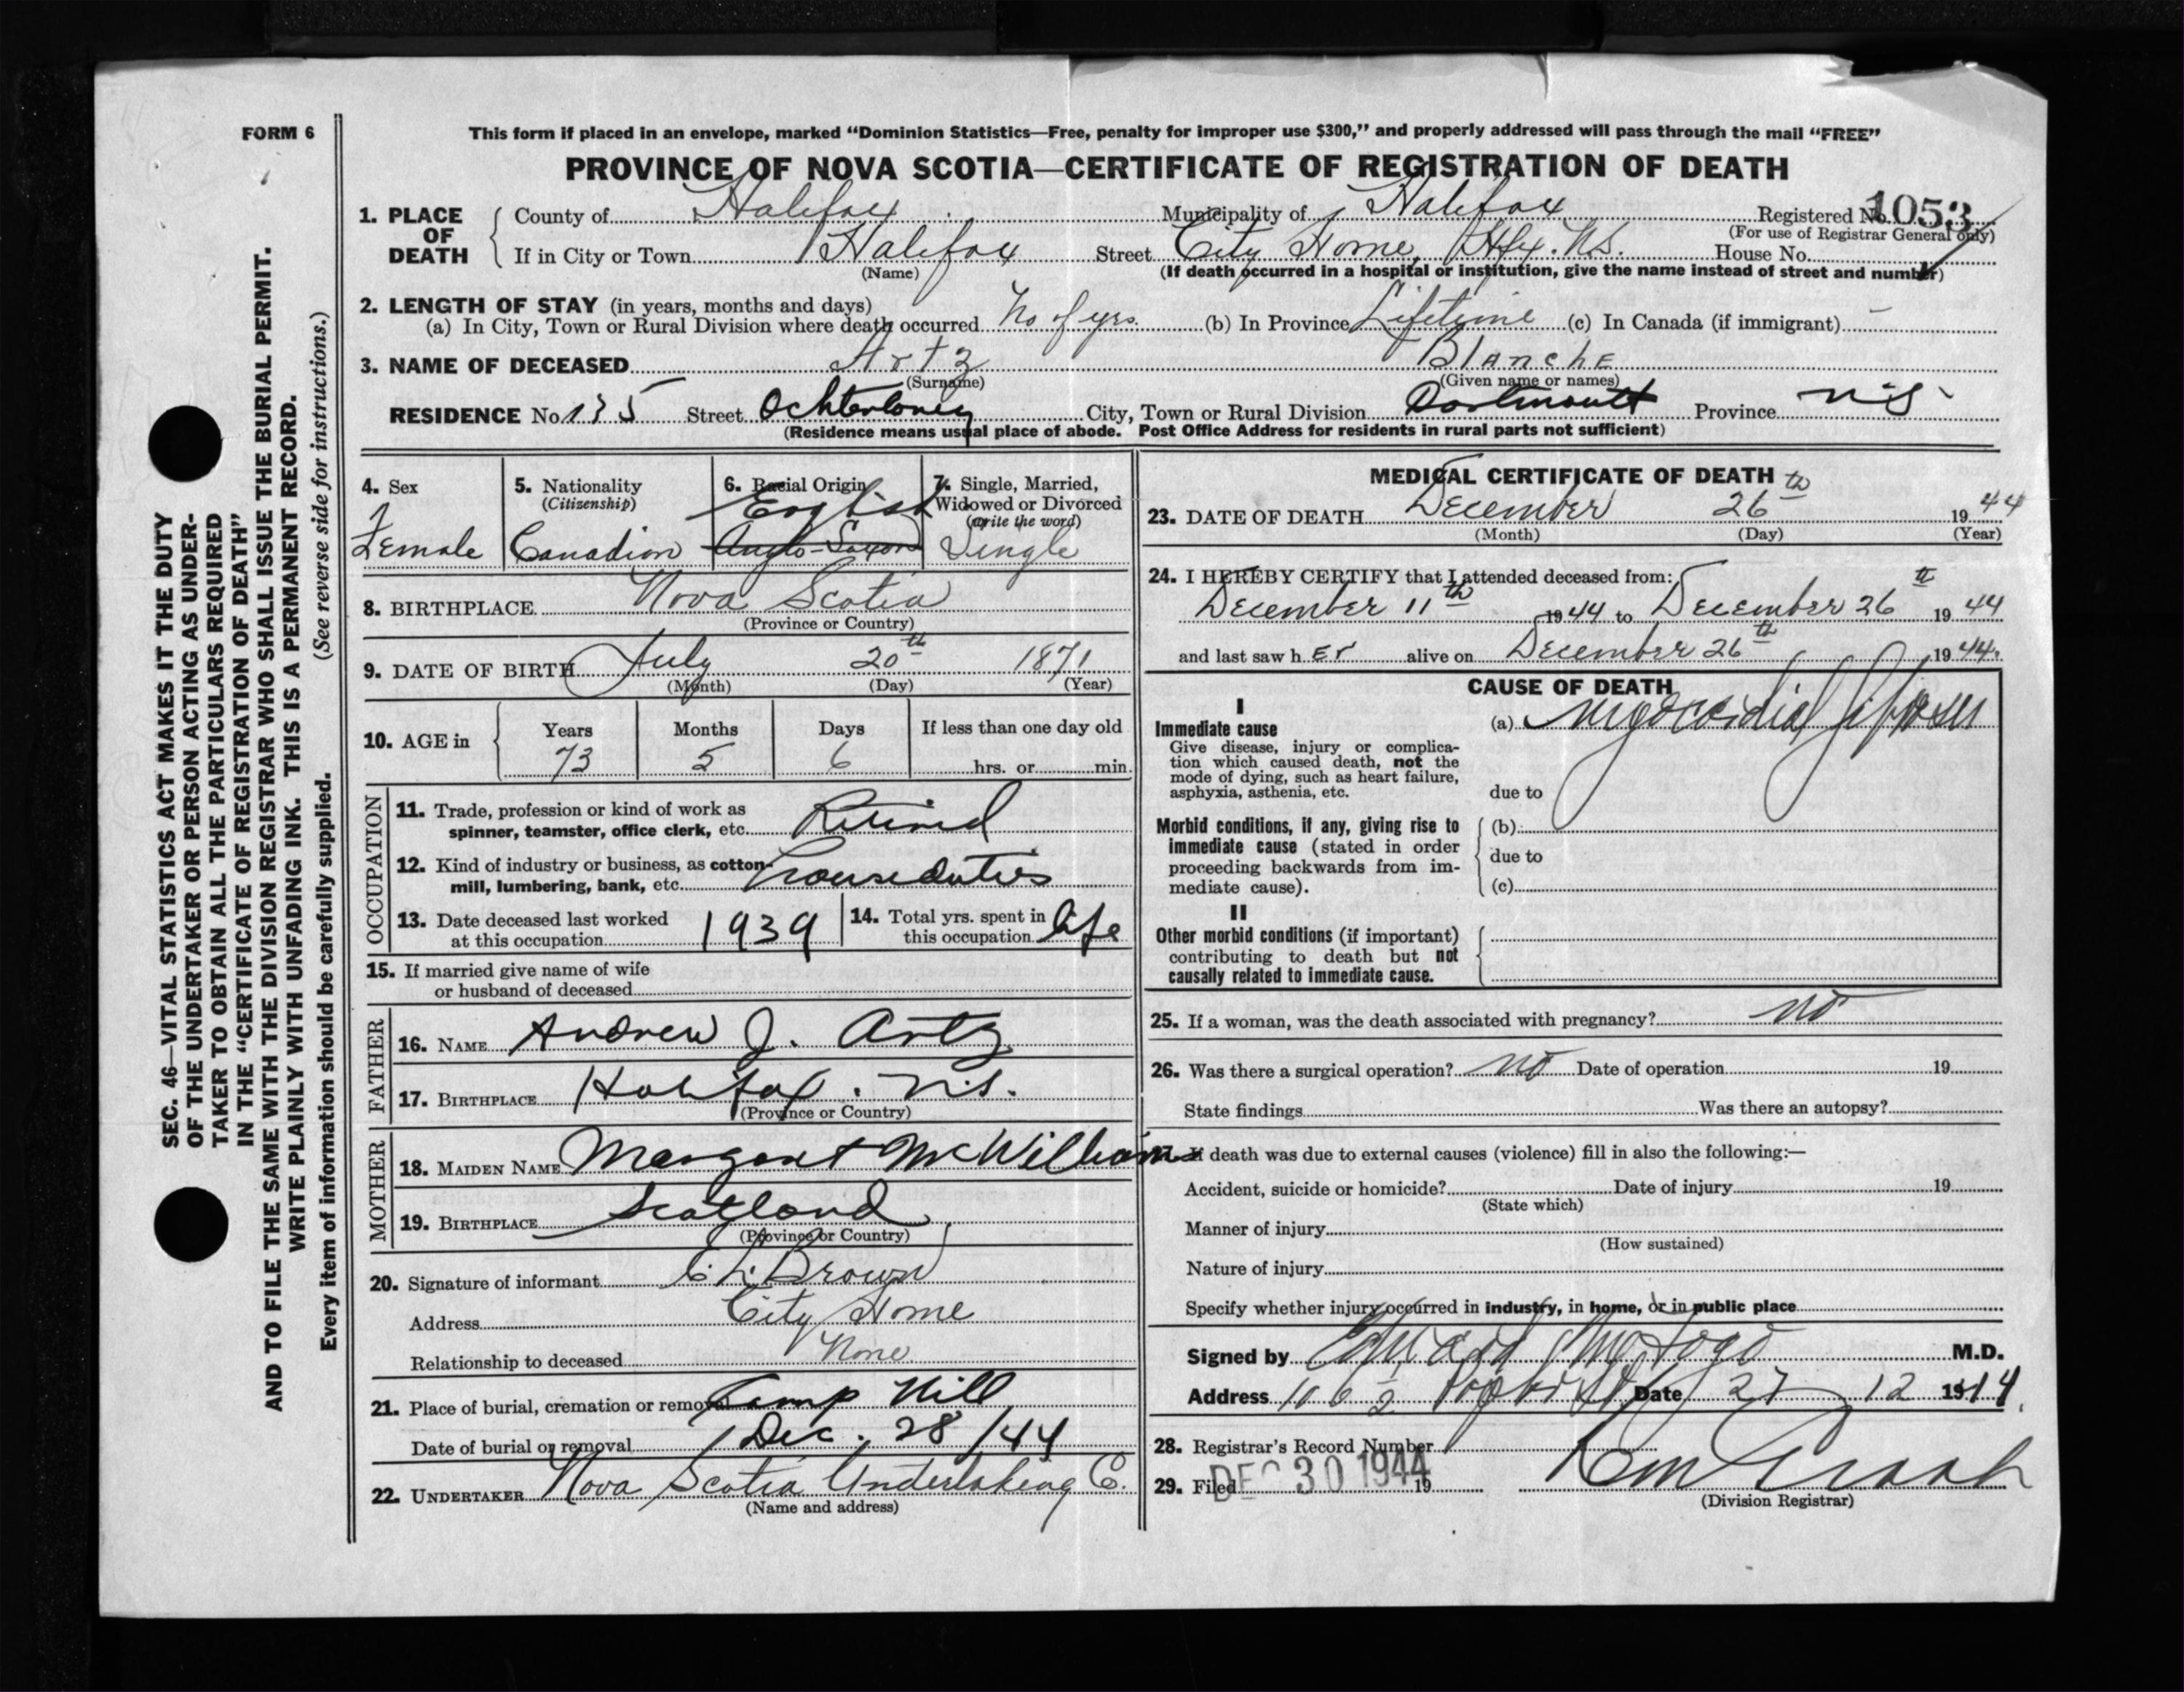 FORM 6
This form if placed in an envelope, marked “Dominion Statistics—Free, penalty for improper use $300,” and properly addressed will pass through the mail “FREE”
PROVINCE OF NOVA SCOTIA—CERTIFICATE OF REGISTRATION OF DEATH
SEC. 46—VITAL STATISTICS ACT MAKES IT THE DUTY
OF THE UNDERTAKER OR PERSON ACTING AS UNDER-
TAKER TO OBTAIN ALL THE PARTICULARS REQUIRED
IN THE “CERTIFICATE OF REGISTRATION OF DEATH”
AND TO FILE THE SAME WITH THE DIVISION REGISTRAR WHO SHALL ISSUE THE BURIAL PERMIT.
WRITE PLAINLY WITH UNFADING INK. THIS IS A PERMANENT RECORD.
Every item of information should be carefully supplied. (See reverse side for instructions.)
1. PLACE OF DEATH
County of Halifax Municipality of Halifax Registered No. 1053
(For use of Registrar General only)
If in City or Town Halifax Street City Home, Hfx. N.S. House No.
(Name) (If death occurred in a hospital or institution, give the name instead of street and number)
2. LENGTH OF STAY (in years, months and days)
(a) In City, Town or Rural Division where death occurred No of yrs. (b) In Province Lifetime (c) In Canada (if immigrant) -
3. NAME OF DECEASED Artz Blanche
(Surname) (Given name or names)
RESIDENCE No. 135 Street Ochterloney City, Town or Rural Division Dartmouth Province N.S.
(Residence means usual place of abode. Post Office Address for residents in rural parts not sufficient)
4. Sex Female
5. Nationality (Citizenship) Canadian
6. Racial Origin English Anglo-Saxon
7. Single, Married, Widowed or Divorced (write the word) Single
8. BIRTHPLACE Nova Scotia
(Province or Country)
9. DATE OF BIRTH July 20th 1871
(Month) (Day) (Year)
10. AGE in Years Months Days If less than one day old
73 5 6 hrs. or min.
OCCUPATION
11. Trade, profession or kind of work as
spinner, teamster, office clerk, etc. Retired
12. Kind of industry or business, as cotton-
mill, lumbering, bank, etc. Houseduties
13. Date deceased last worked
at this occupation 1939
14. Total yrs. spent in
this occupation life
15. If married give name of wife
or husband of deceased
FATHER
16. NAME Andrew J. Artz
17. BIRTHPLACE Halifax. N.S.
(Province or Country)
MOTHER
18. MAIDEN NAME Margaret McWilliams
19. BIRTHPLACE Scotland
(Province or Country)
20. Signature of informant Brown
Address City Home
Relationship to deceased None
21. Place of burial, cremation or removal Camp Hill
Date of burial or removal Dec. 28/44
22. UNDERTAKER Nova Scotia Undertaking C.
(Name and address)
MEDICAL CERTIFICATE OF DEATH
23. DATE OF DEATH December 26th 1944
(Month) (Day) (Year)
24. I HEREBY CERTIFY that I attended deceased from:
December 11th 1944 to December 26th 1944
and last saw her alive on December 26th 1944.
CAUSE OF DEATH
I
Immediate cause
Give disease, injury or complica-
tion which caused death, not the
mode of dying, such as heart failure,
asphyxia, asthenia, etc.
(a) Myocardial
due to
Morbid conditions, if any, giving rise to
immediate cause (stated in order
proceeding backwards from im-
mediate cause).
(b)
due to
(c)
II
Other morbid conditions (if important)
contributing to death but not
causally related to immediate cause.
25. If a woman, was the death associated with pregnancy? no
26. Was there a surgical operation? no Date of operation 19
State findings Was there an autopsy?
If death was due to external causes (violence) fill in also the following:—
Accident, suicide or homicide? Date of injury 19
(State which)
Manner of injury
(How sustained)
Nature of injury
Specify whether injury occurred in industry, in home, or in public place
Signed by M.D.
Address Date 27 12 1944
28. Registrar's Record Number
29. Filed DEC 30 1944 19
(Division Registrar)